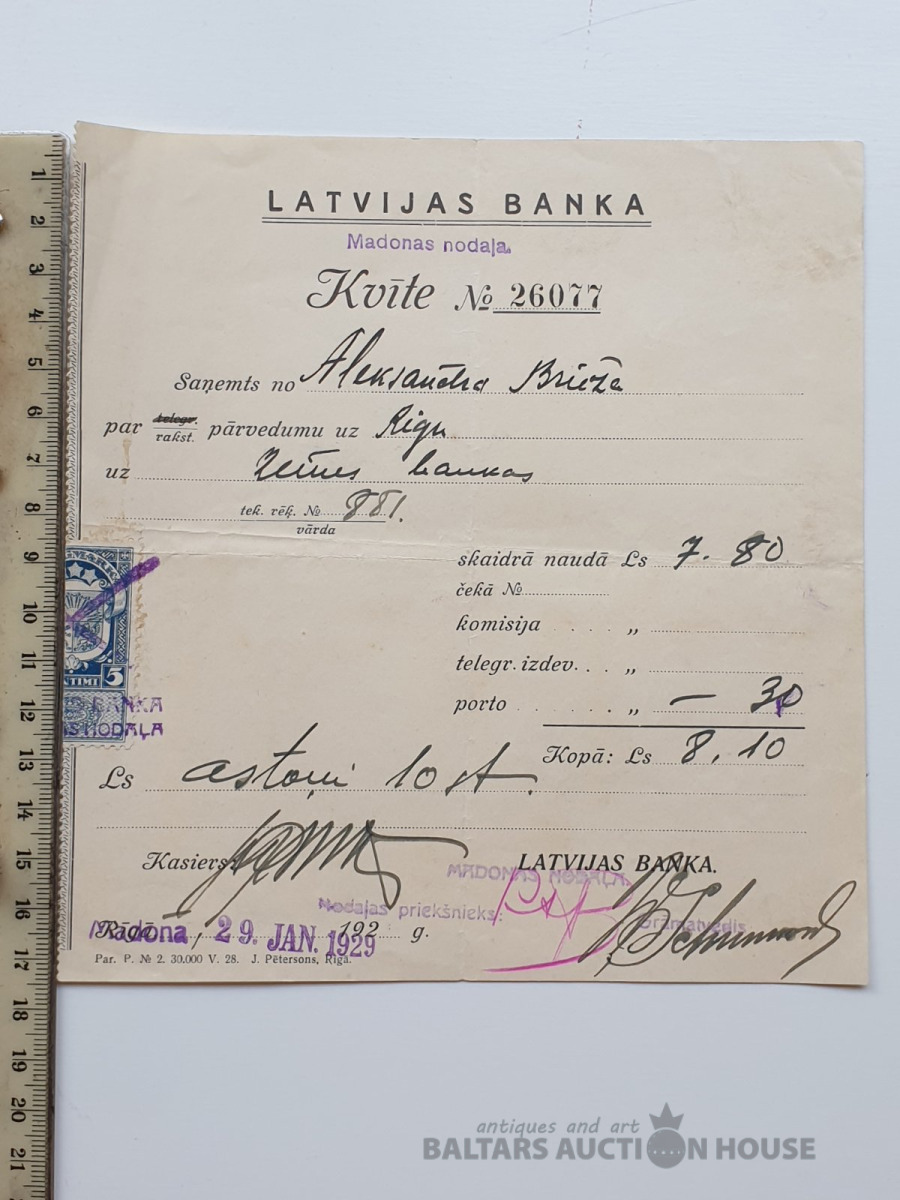 LATVIJAS BANKA
Madonas nodaļa.
Kvīte № 26077
Saņemts no Aleksandra Brieža
par telegr. rakst. pārvedumu uz Rigu
uz Zemes bankas
tek. rēķ. № 881.
vārda
skaidrā naudā Ls 7.80
čekā №
komisija . . . . „
telegr. izdev. . . „
porto . . . . . „ — 30
5
BANKA
NODAĻA
Kopā: Ls 8,10
Ls astoņi 10 st.
Kasiers:
LATVIJAS BANKA.
MADONAS NODAĻA
Nodaļas priekšnieks:
Grāmatvedis
Madona, 29. JAN. 1929 192 g.
Par. P. № 2. 30.000 V. 28. J. Pētersons, Rīgā.
1 2 3 4 5 6 7 8 9 10 11 12 13 14 15 16 17 18 19 20 21
antiques and art
BALTARS AUCTION HOUSE